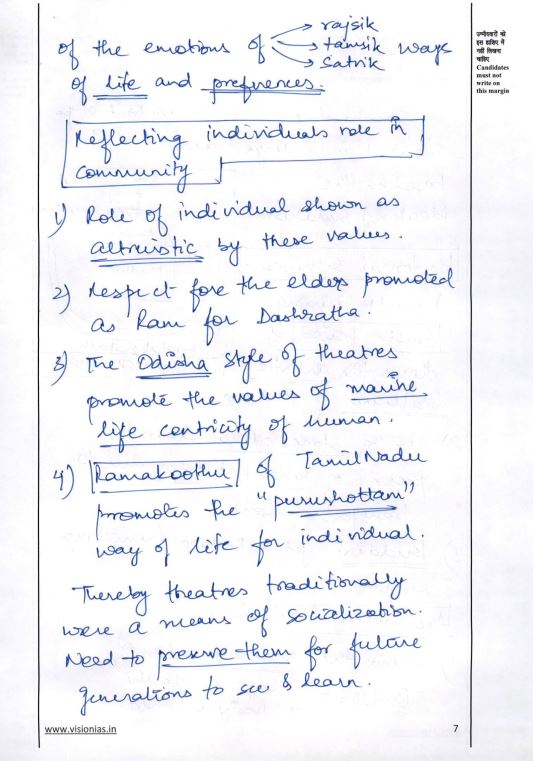 → rajsik
of the emotions of → tamsik ways
→ Satvik
of life and preferences.
Reflecting individuals role in
community
1) Role of individual shown as
altruistic by these values.
2) Respect fore the elders promoted
as Ram for Dashratha.
3) The Odisha style of theatres
promote the values of marine
life centricity of human.
4) Ramakoothu of Tamil Nadu
promotes the "purushottam"
way of life for individual.
Thereby theatres traditionally
were a means of socialization.
Need to preserve them for future
generations to see & learn.
उम्मीदवारों को
इस हाशिए में
नहीं लिखना
चाहिए
Candidates
must not
write on
this margin
www.visionias.in
7